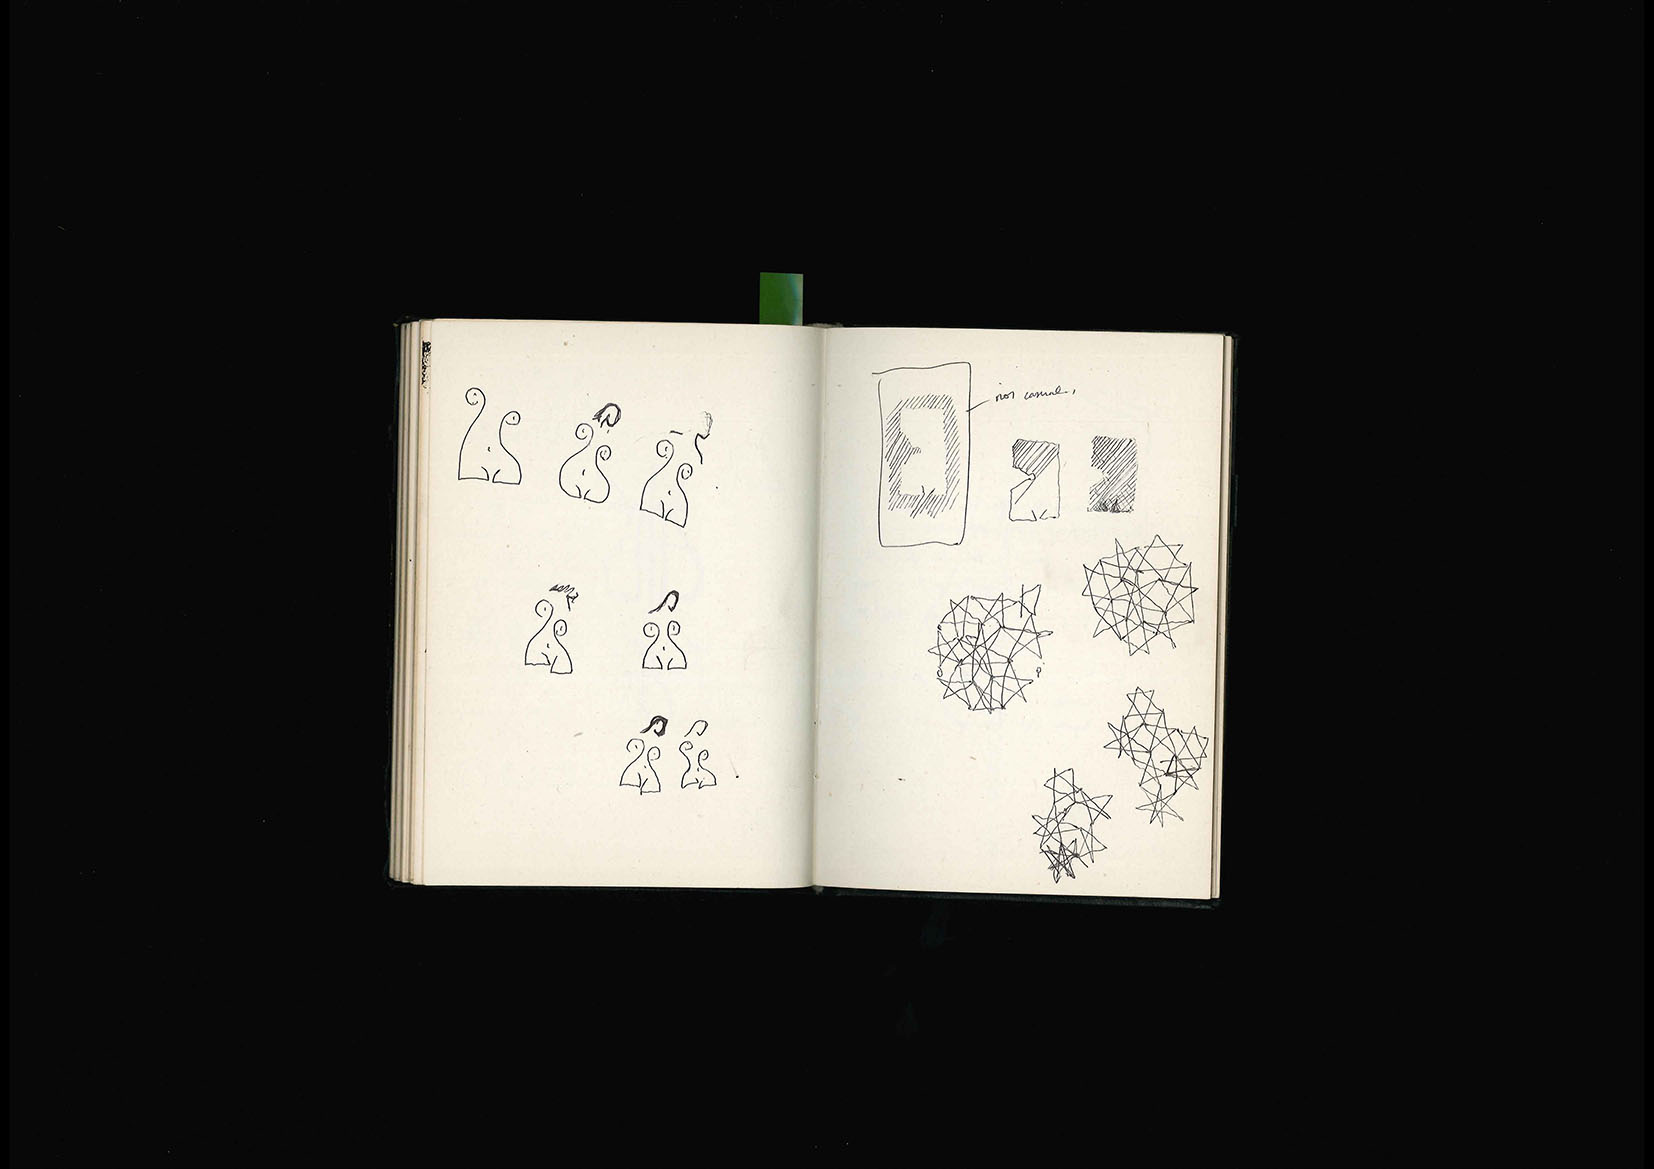 not casual,